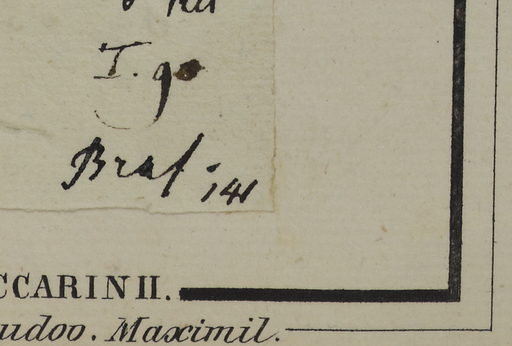 I. 90
Bras. 141
CCARINII.
udoo. Maximil.